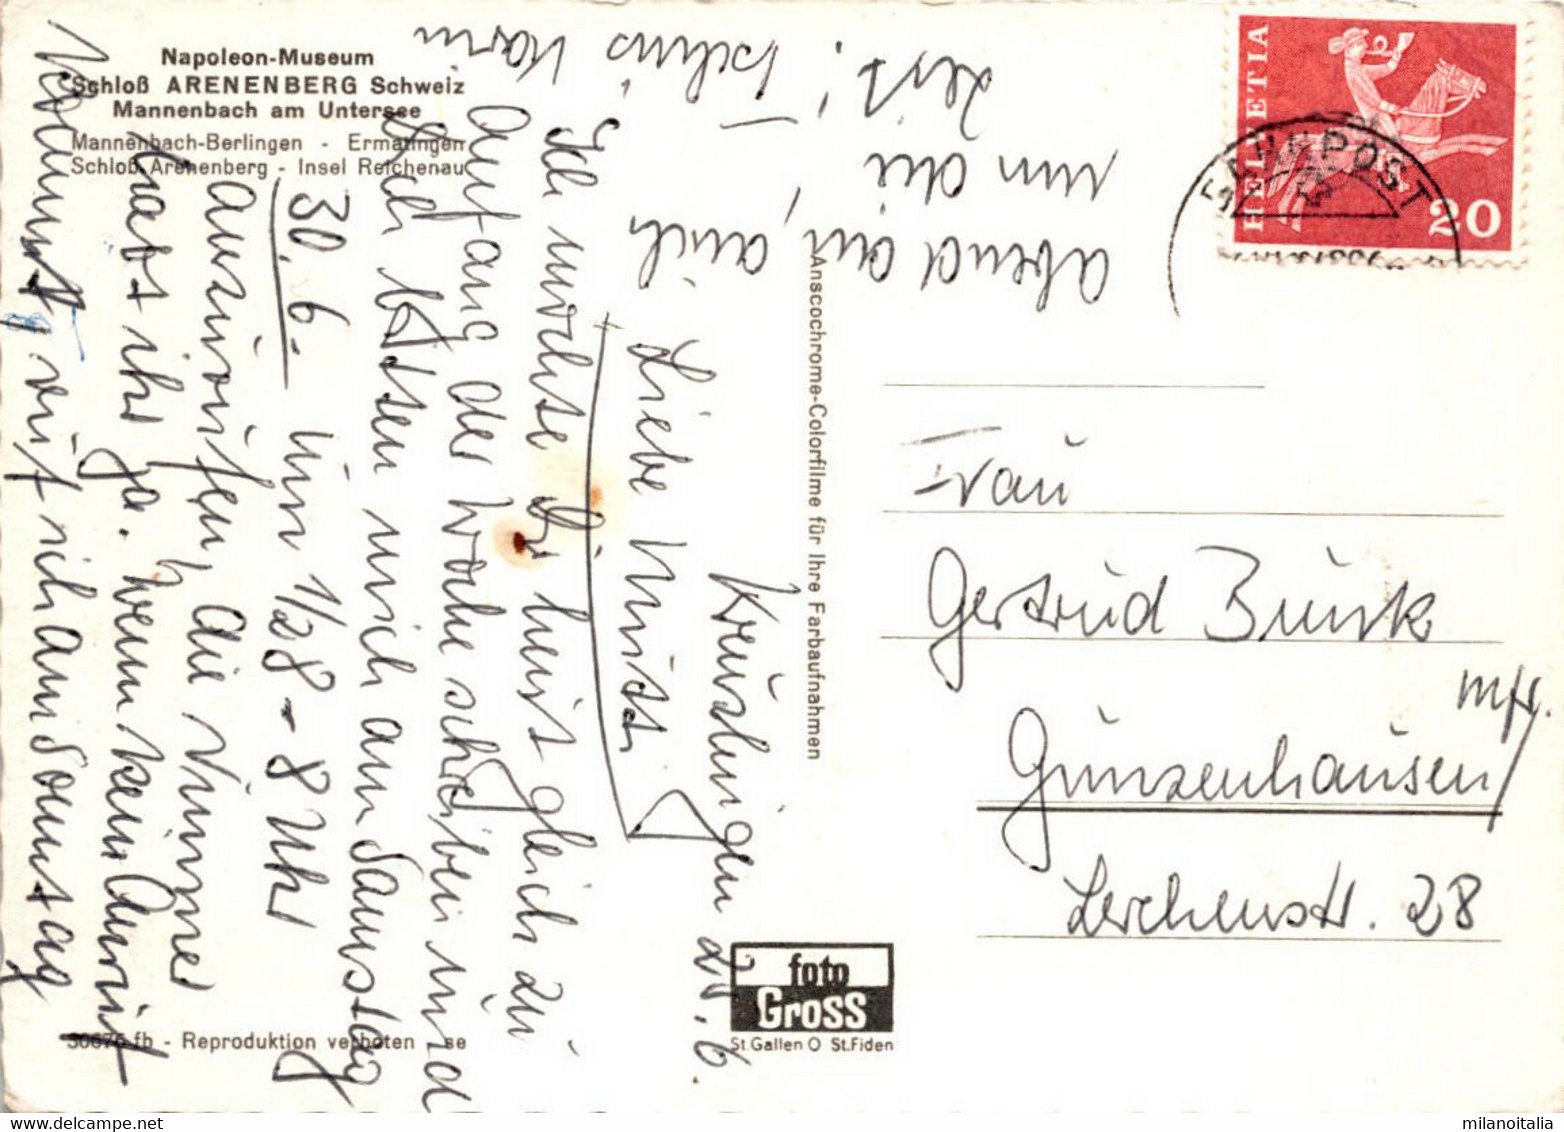 Napoleon-Museum
Schloß ARENENBERG Schweiz
Mannenbach am Untersee
Mannenbach-Berlingen - Ermatingen
Schloß Arenenberg - Insel Reichenau
Kreuzlingen 25. 6.
Liebe Mutti
Ich möchte Dir heut gleich zu
Anfang der Woche schreiben und
Dich bitten mich am Samstag
30. 6. um 1/28 - 8 Uhr
anzurufen, die Nummer
habt ihr ja. Wenn kein Anruf
kommt, ruf ich am Sonntag
abend an, auch
um die
Zeit! Tschüs Karin
Anscochrome-Colorfilme für Ihre Farbaufnahmen
foto
Gross
St.Gallen O St.Fiden
30676 fb - Reproduktion verboten - se
HELVETIA
20
BAHNPOST
Frau
Gertrud Bunk
Gunzenhausen/
Mfr.
Lerchenstr. 28
www.delcampe.net
milanoitalia